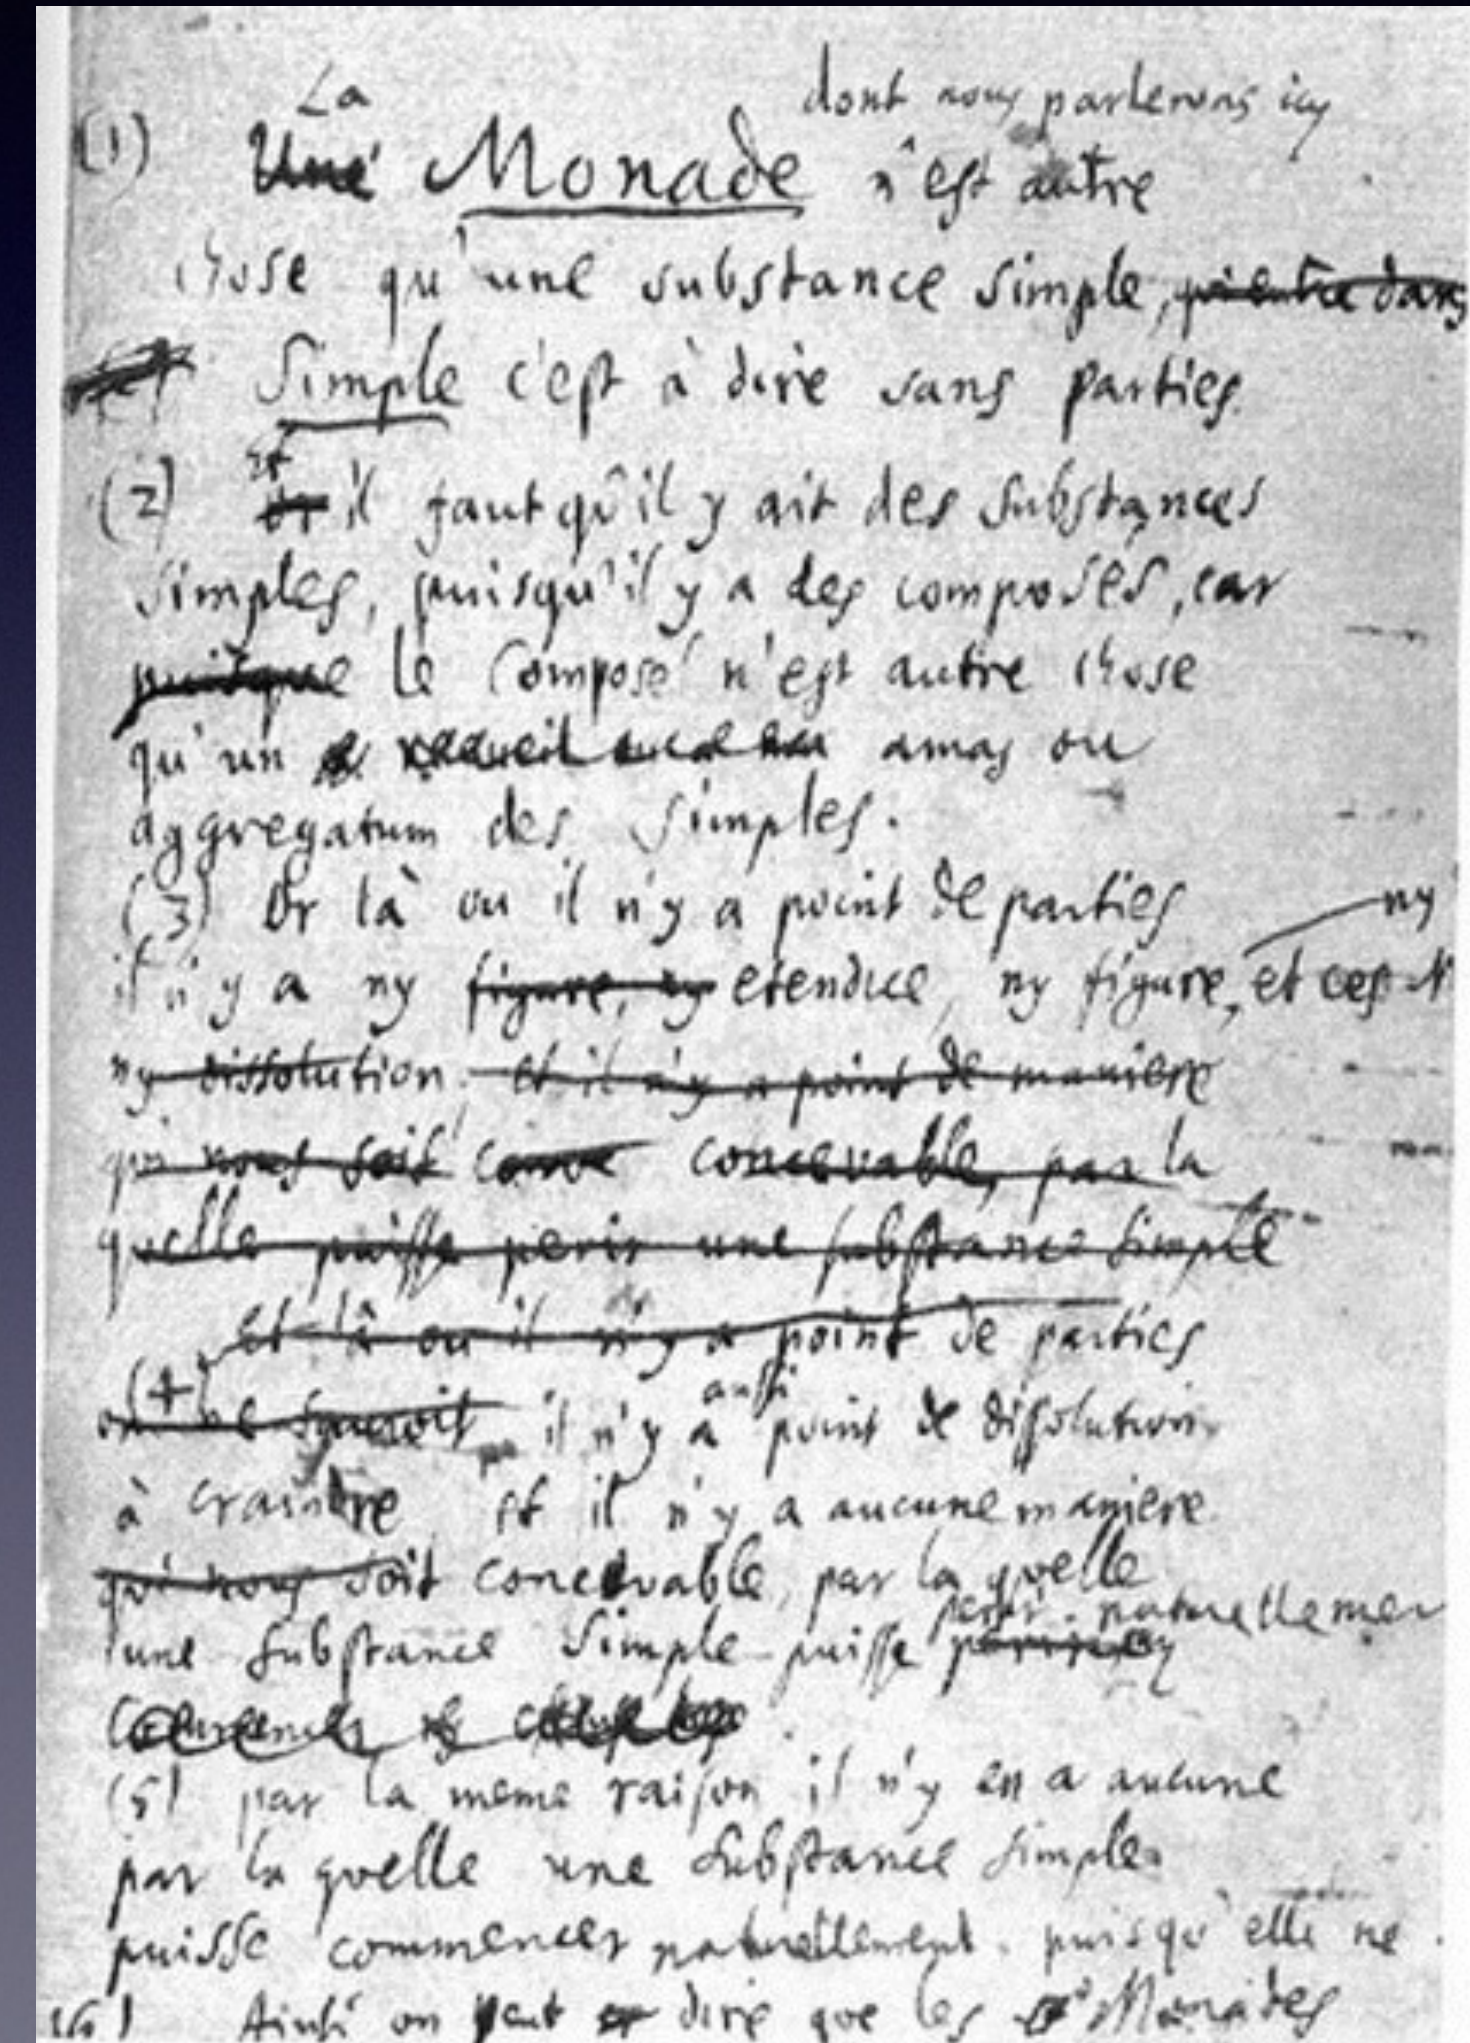 La dont nous parlerons icy
(1) Une Monade n'est autre
chose qu'une substance simple, qui entre dans
Simple c'est à dire sans parties.
(2) et Or il faut qu'il y ait des substances
simples, puisqu'il y a des composés, car
puisque le Composé n'est autre chose
qu'un recueil amas ou
aggregatum des simples.
(3) Or là ou il n'y a point de parties ny
il n'y a ny figure, ny etendue, ny figure, et ces
ny dissolution. et il n'y a point de maniere
qui nous soit conce concevable, par la
quelle puisse perir une substance simple
et là ou il n'y a point de parties
(4) on ne sçauroit il n'y a aussi point de dissolution
à craindre, et il n'y a aucune maniere
qui nous soit concevable, par la quelle
perir naturellemen
une substance simple puisse
(5) par la meme raison il n'y en a aucune
par la quelle une substance simple
puisse commencer naturellement. puisqu'elle ne
(6) Ainsi on peut dire que les Monades